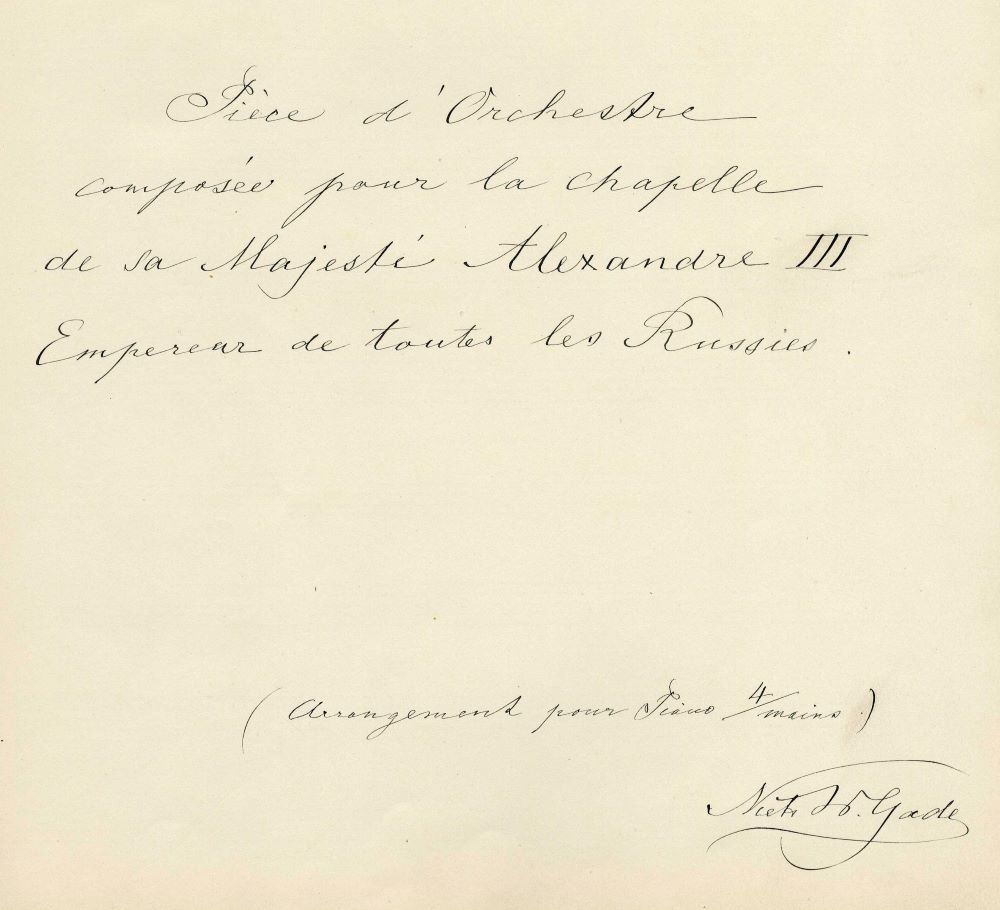 Pièce d'Orchestre
composée pour la chapelle
de sa Majesté Alexandre III
Empereur de toutes les Russies.
(Arrangement pour Piano 4/mains)
Niels W. Gade